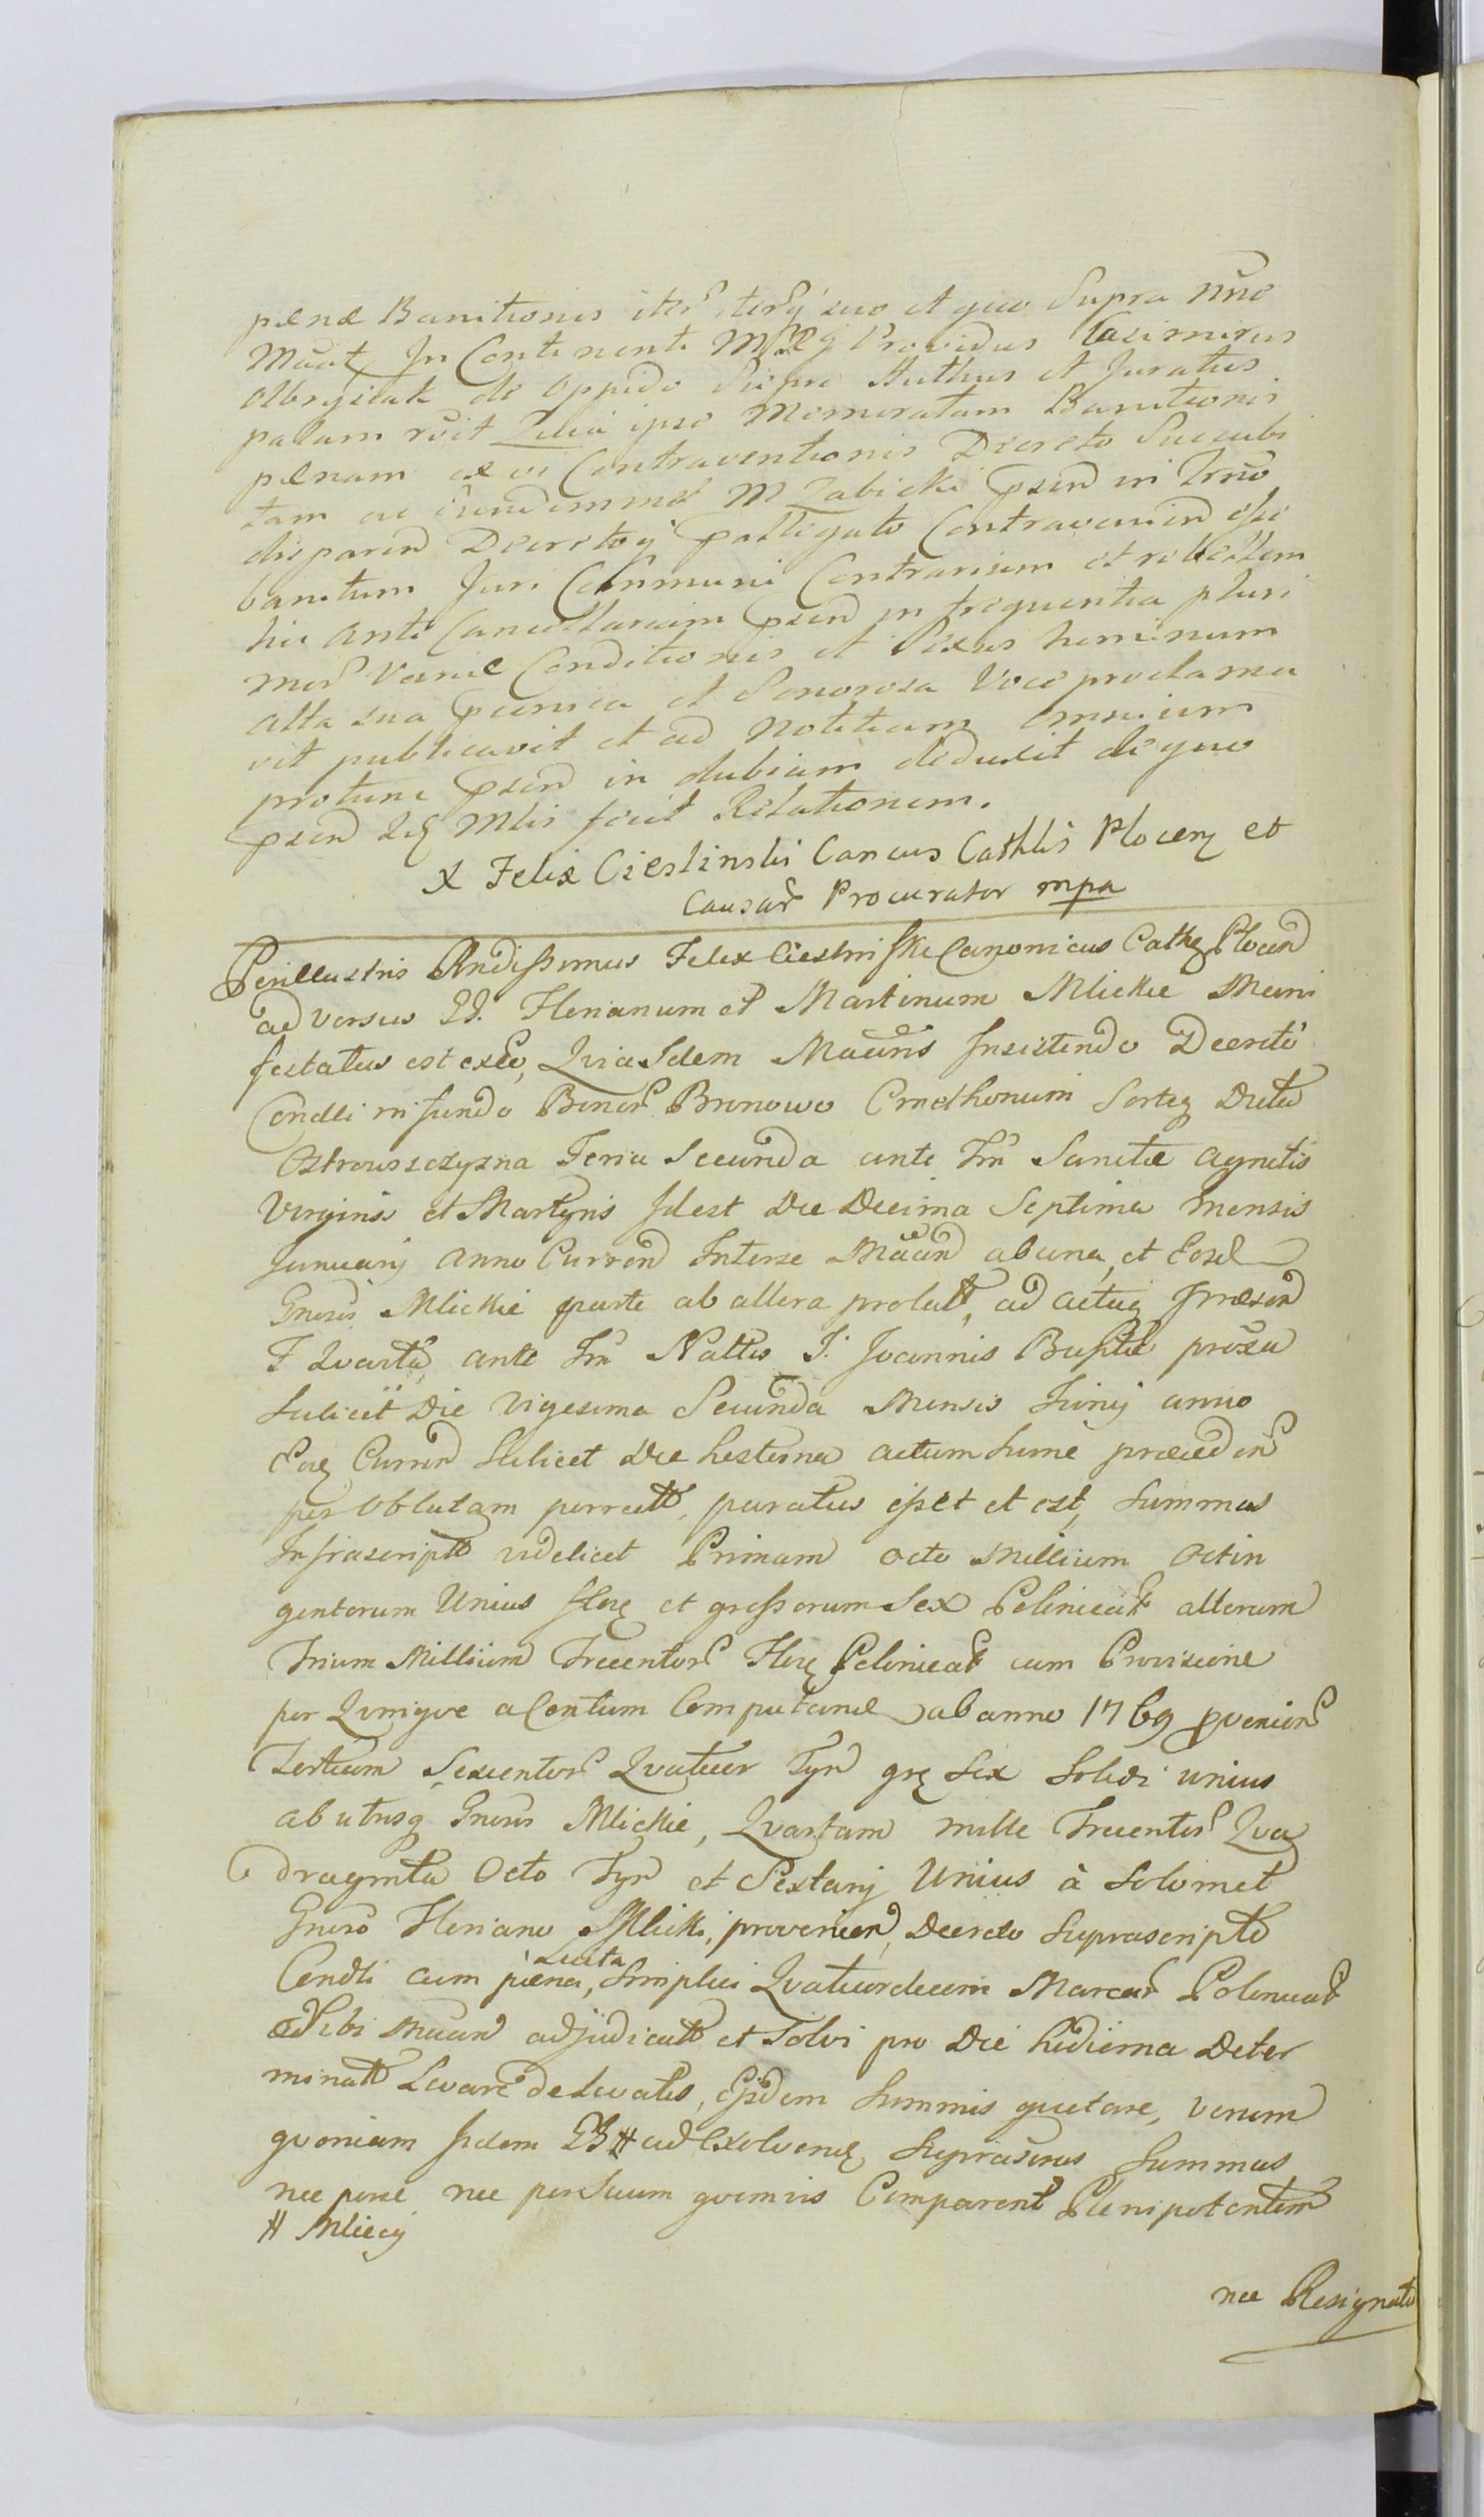 pænæ Banitionis iter iterq suo et quo Supra nro
In Continenti Providus Casimirus
Olbrysiak de Oppido Sierpc Authus et Juratus
palam rcit Quia ipse Memoratam Banitionis
pænam ex vi Contraventionis Decreto Succubi
tam ac eundemmet M Zabicki psend in Trno
disparend Decretoq pactigato Contraveniend esse
banitum Juri Communi Contrarium et rebellem
hic ante Cancellariam psend in frequentia pluri
mor Variæ Conditionis et Sexus hominum
alta sua et Sonorosa Voce proclama
vit publicavit et ad Notitiam omnium
protunc psend in dubiam deduxit de quo
psend Mlis fecit Relationem.
X Felix Ciesliński Cancus Cathlis Plocen et
Causar Procurator mpa
Perillustris Rndissimus Felix Ciesliński Canonicus Cath Plocen
adversus GG. Florianum et Martinum Mlickie Mani
festatus est exeo, Quia Idem Maans Insistendo Decreto
Condli in fundo Bonor Bronowo Cmethonum Sorte Dicta
Ostrowszczyzna Feria Secunda ante Fm Sanctæ Agnetis
Virginis et Martyris Idest Die Decima Septima Mensis
January Anno Curren Interse Maan ab una, et Eosd
Gnosos Mlickie parte ab altera prolatt, ad actaq præsen
F Quarta ante Fm Nattis S. Joannis Baptæ proxa
Scilicet Die Vigesima Secunda Mensis Juny anno
Eoq Curren Scilicet Die hesterna actum hunc præceden
per Oblatam porrectt, paratus esset et est, Summas
Infrascriptt videlicet Primam octo Millium Octin
gentorum Unius flor et grossorum Sex Polonical alteram
Trium Millium Trecentor Flor Polonical cum Provisione
per Quinque a Centum Computand ab anno 1769 pvenien
Tertiam Sexcentor Quatuor Tyn gr Sex Solidi unius
ab utrisq Gnosis Mlickie, Quartam mille Trecentor Qua
draginta Octo Tyn et Sextary Unius à Solomet
Gnoso Floriano Mlicki, provenien, Decreto Suprascripto
Condli cum pæna, Lucta Simplici Quatuordecim Marcar Polonical
Sibi Maan adjudicatt et Solvi pro Die hodierna Deter
minatt Levare de Levatis, Eisdem Summis quietare, verum
quoniam Iidem GG # ad Exolvend Supraseras Summas
nec perse nec per Suum quemvis Comparent Plenipotentem
# Mliccy
nec Resignato